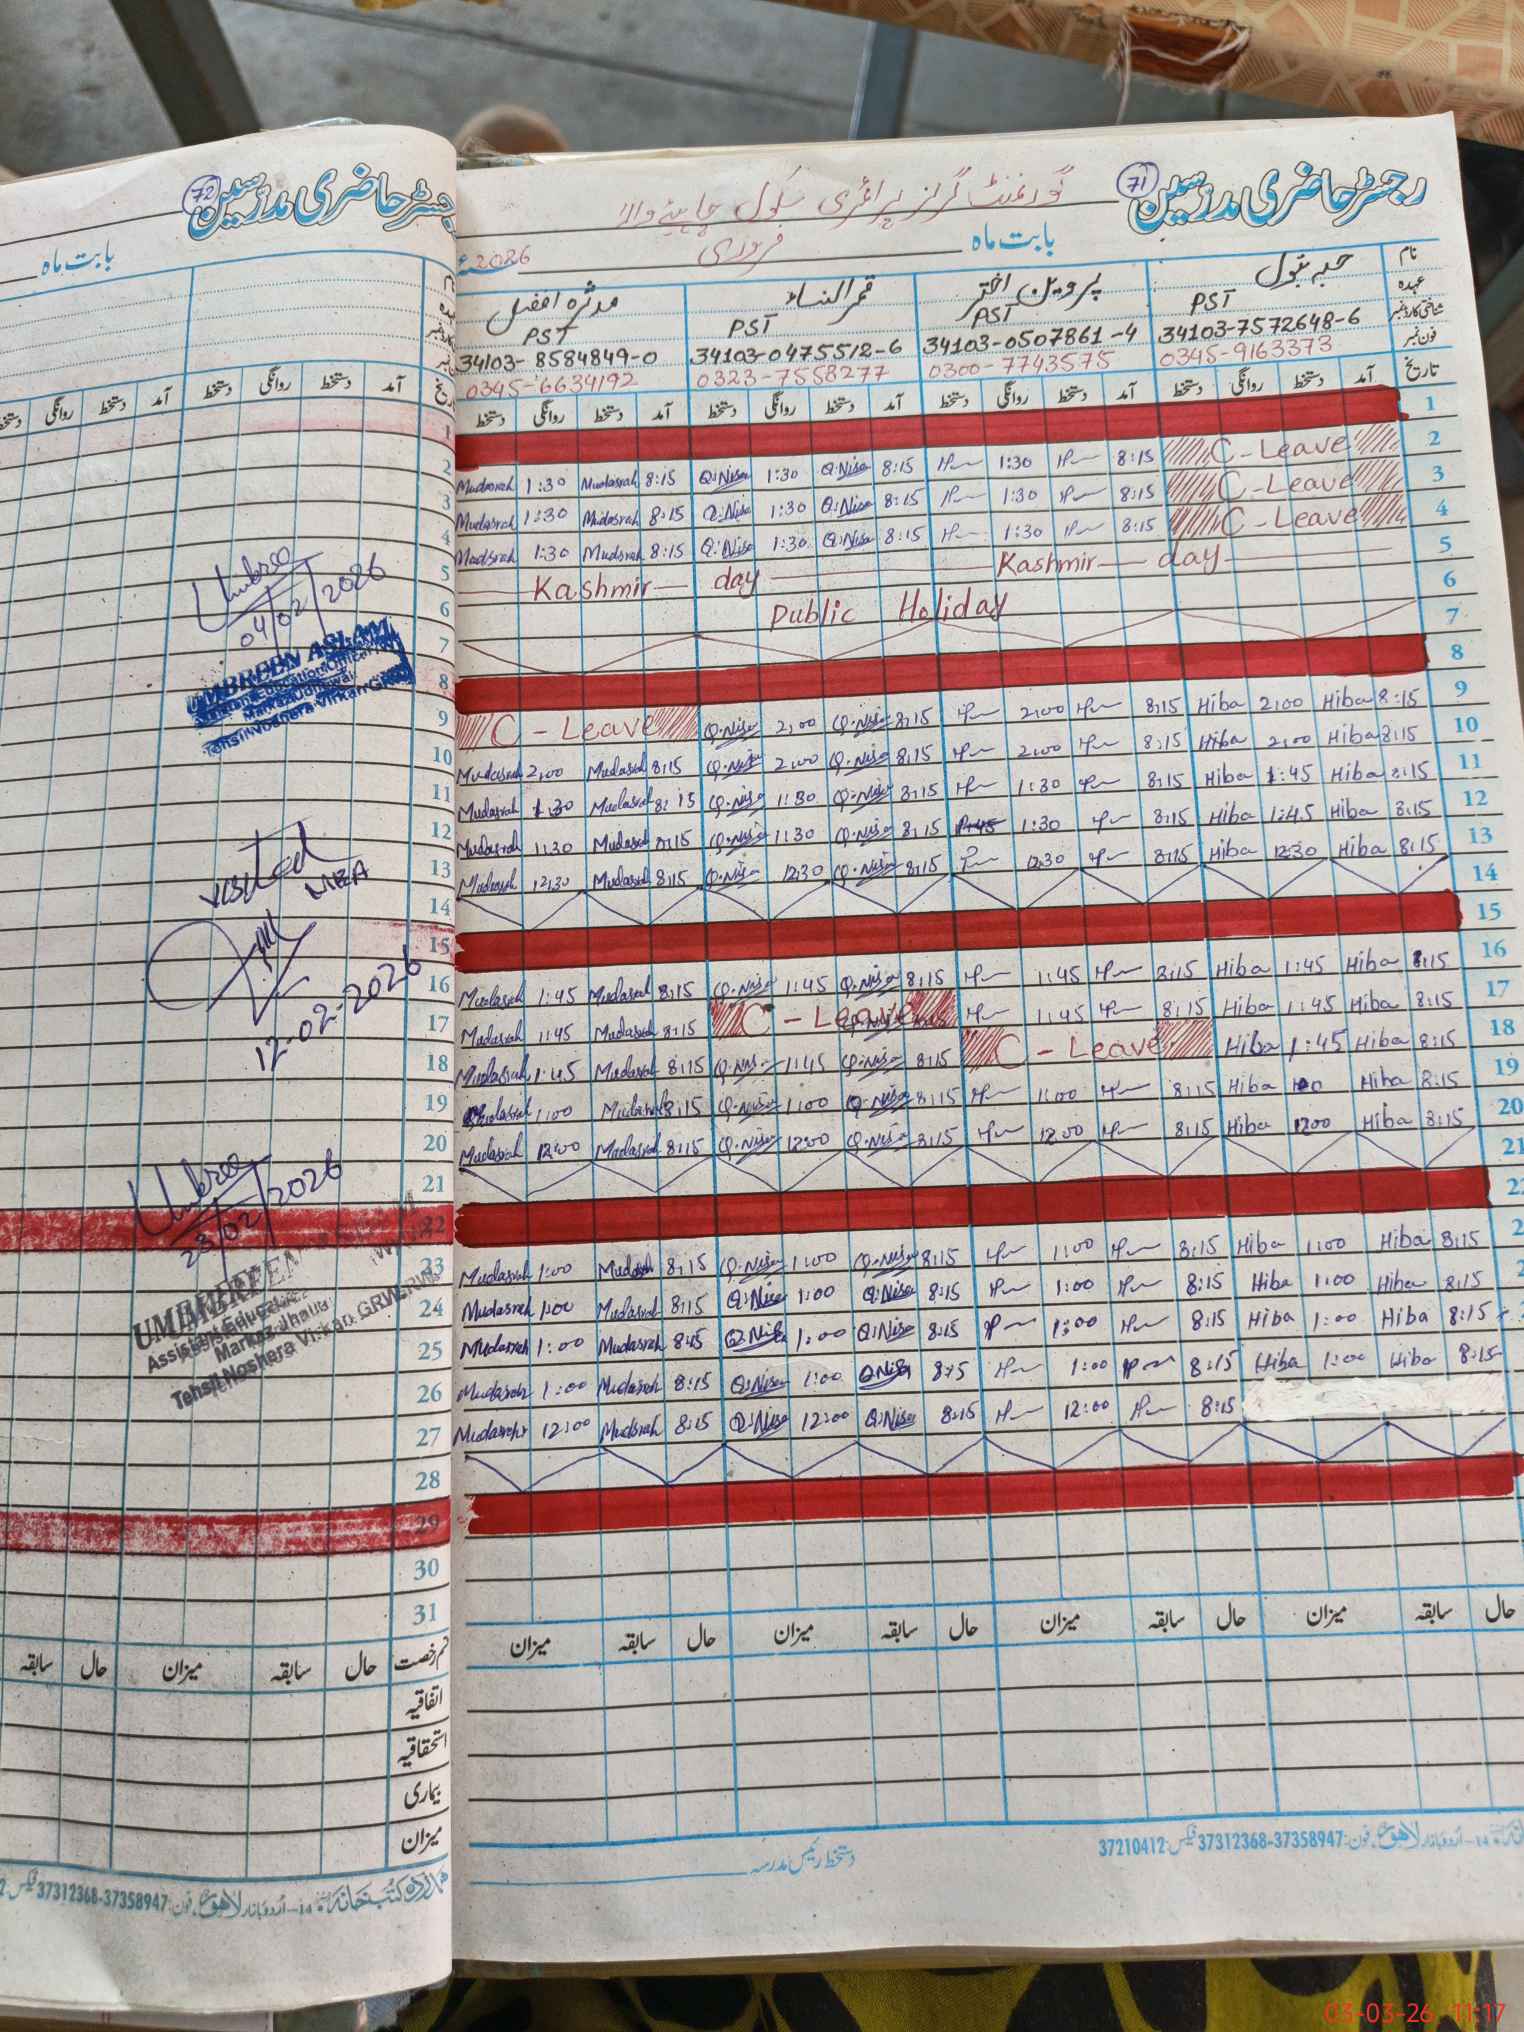 رجسٹر حاضری مدرسین
72
بابت ماہ
آمد دستخط روانگی دستخط آمد دستخط روانگی دستخط
1
2
3
4
5
6
7
8
9
10
11
12
13
14
15
16
17
18
19
20
21
22
23
24
25
26
27
28
29
30
31
04/02/2026
UMBREEN ASLAM
Tehsil Noshera Virkan GRW
visited
MEA
12-02-2026
23/02/2026
Tehsil Noshera Virkan GRW
حال سابقہ میزان حال سابقہ
اتفاقیہ
استحقاقیہ
بیماری
میزان
فون: 37358947-37312368
رجسٹر حاضری مدرسین
71
گورنمنٹ گرلز پرائمری سکول چاہیے والا
بابت ماہ فروری 2026
نام حبہ بتول پروین اختر قمرالنساء مدثرہ افضل
عہدہ PST PST PST PST
شناختی کارڈ نمبر 34103-7572648-6 34103-0507861-4 34103-0475512-6 34103-8584849-0
فون نمبر 0345-9163373 0300-7743575 0323-7558277 0345-6634192
تاریخ آمد دستخط روانگی دستخط آمد دستخط روانگی دستخط آمد دستخط روانگی دستخط آمد دستخط روانگی دستخط
1
Mudasrah 1:30 Mudasrah 8:15 Q:Nisa 1:30 Q:Nisa 8:15 1:30 8:15 C-Leave 2
Mudasrah 1:30 Mudasrah 8:15 Q:Nisa 1:30 Q:Nisa 8:15 1:30 8:15 C-Leave 3
Mudsrah 1:30 Mudsrah 8:15 Q:Nisa 1:30 Q:Nisa 8:15 1:30 8:15 C-Leave 4
Kashmir day Kashmir day 5
Public Holiday 6
7
8
C-Leave Q.Nisa 2:00 Q.Nisa 8:15 2:00 8:15 Hiba 2:00 Hiba 8:15 9
Mudasrah 2:00 Mudasrah 8:15 Q.Nisa 2:00 Q.Nisa 8:15 2:00 8:15 Hiba 2:00 Hiba 8:15 10
Mudasrah 1:30 Mudasrah 8:15 Q.Nisa 1:30 Q.Nisa 8:15 1:30 8:15 Hiba 1:45 Hiba 8:15 11
Mudasrah 1:30 Mudasrah 8:15 Q.Nisa 1:30 Q.Nisa 8:15 1:30 8:15 Hiba 1:45 Hiba 8:15 12
Mudasrah 12:30 Mudasrah 8:15 Q.Nisa 12:30 Q.Nisa 8:15 12:30 8:15 Hiba 12:30 Hiba 8:15 13
14
15
Mudasrah 1:45 Mudasrah 8:15 Q.Nisa 1:45 Q.Nisa 8:15 1:45 8:15 Hiba 1:45 Hiba 8:15 16
Mudasrah 1:45 Mudasrah 8:15 C-Leave 1:45 8:15 Hiba 1:45 Hiba 8:15 17
Mudasrah 1:45 Mudasrah 8:15 Q.Nisa 1:45 Q.Nisa 8:15 C-Leave Hiba 1:45 Hiba 8:15 18
Mudasrah 1:00 Mudasrah 8:15 Q.Nisa 1:00 Q.Nisa 8:15 1:00 8:15 Hiba Hiba 8:15 19
Mudasrah 12:00 Mudasrah 8:15 Q.Nisa 12:00 Q.Nisa 8:15 12:00 8:15 Hiba 12:00 Hiba 8:15 20
21
Mudasrah 1:00 Mudasrah 8:15 Q.Nisa 1:00 Q.Nisa 8:15 1:00 8:15 Hiba 1:00 Hiba 8:15
Mudasrah 1:00 Mudasrah 8:15 Q:Nisa 1:00 Q:Nisa 8:15 1:00 8:15 Hiba 1:00 Hiba 8:15
Mudasrah 1:00 Mudasrah Q:Nisa 1:00 Q:Nisa 8:15 1:00 8:15 Hiba 1:00 Hiba 8:15
Mudasrah 1:00 Mudasrah 8:15 Q:Nisa 1:00 Q:Nisa 1:00 8:15 Hiba 1:00 Hiba 8:15
Mudasrah 12:00 Mudsrah 8:15 Q:Nisa 12:00 Q:Nisa 8:15 12:00 8:15
حال سابقہ میزان حال سابقہ میزان حال سابقہ میزان حال سابقہ میزان
دستخط رئیس مدرسہ
14-اُردو بازار لاہور فون: 37358947-37312368 فیکس: 37210412
03-03-26 11:17